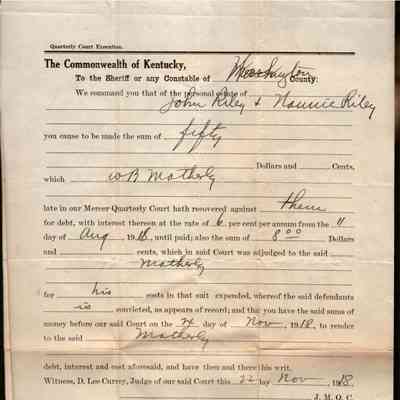 Quarterly Court Execution.
The Commonwealth of Kentucky,
To the Sheriff or any Constable of Washington County:
We command you that of the personal estate of
John Riley & Nannie Riley
you cause to be made the sum of fifty
Dollars and Cents,
which W B Matherly
late in our Mercer Quarterly Court hath recovered against them
for debt, with interest thereon at the rate of 6 per cent per annum from the 11
day of Aug 1916, until paid; also the sum of 8 00 Dollars
and cents, which in said Court was adjudged to the said
Matherly
for his costs in that suit expended, whereof the said defendants
is convicted, as appears of record; and that you have the said sums of
money before our said Court on the day of Nov, 1918, to render
to the said Matherly
debt, interest and cost aforesaid, and have then and there this writ.
Witness, D. Lee Currey, Judge of our said Court this 22 day Nov, 1918.
J. M. Q. C.